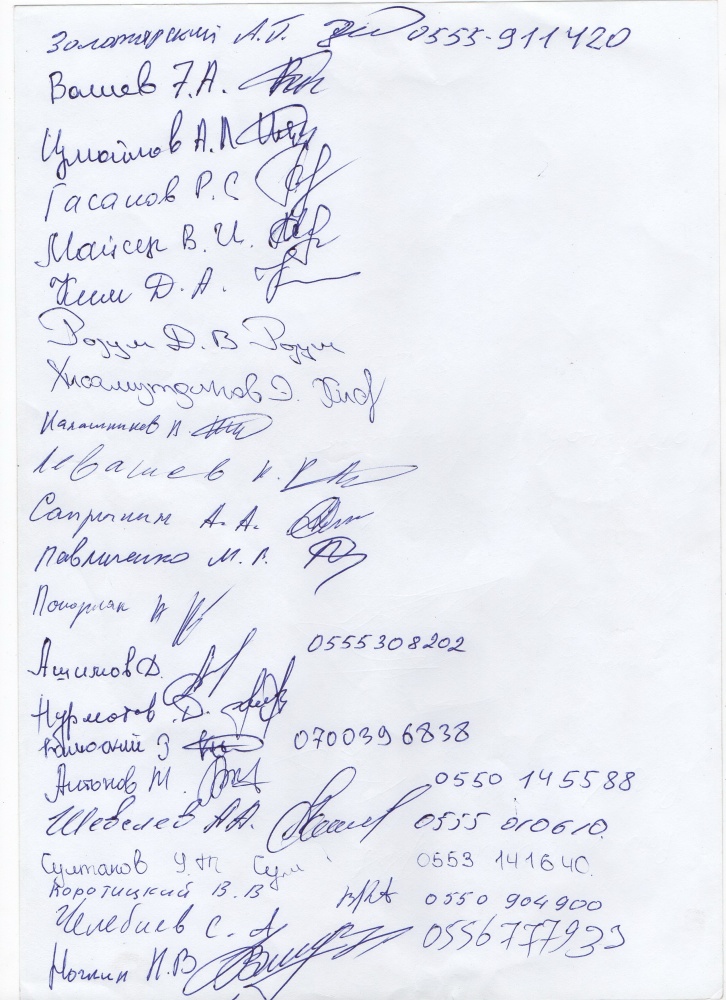 Золотарский А.П. 0555-911420
Валиев Т.А.
Исмаилов А.Л
Гасанов Р.С
Майсек В.И.
Ким Д.А.
Розум Д.В Розум
Хисамутдинов Э.
Калашников В.
Левашев К.
Сапрыкин А.А.
Павличенко М.В.
Понормак Н
0555308202
Ашимов Д.
Нурматов Д.
З 0700396838
Антонов М. 0550 145588
Шевелев А.А. 0555 010610
Султанов У.Т Сул 0553 141640
Коротицкий В.В 0550 904900
Челебиев С.А 0556777933
Ногкин И.В